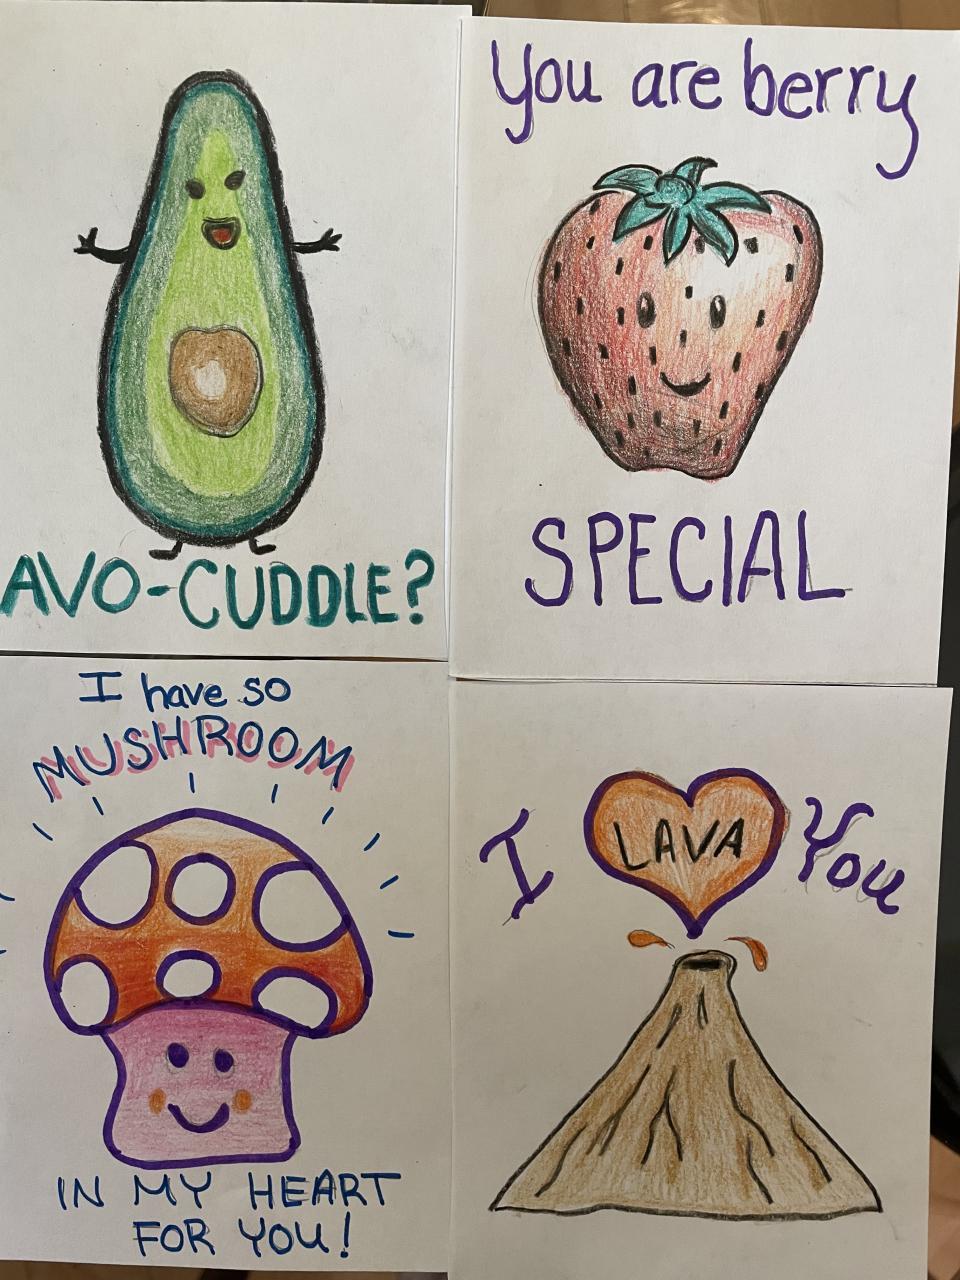 AVO-CUDDLE?
You are berry
SPECIAL
I have so
MUSHROOM
IN MY HEART
FOR YOU!
I LAVA You